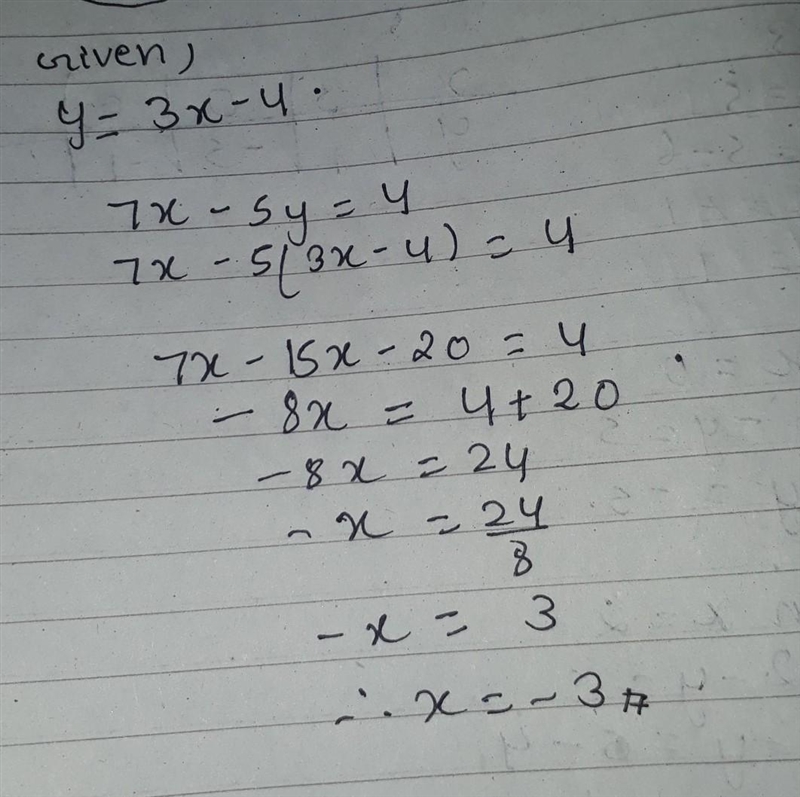 Given,
y = 3x - 4.
7x - 5y = 4
7x - 5(3x - 4) = 4
7x - 15x - 20 = 4
- 8x = 4 + 20
- 8x = 24
- x = 24/8
- x = 3
∴ x = - 3 #